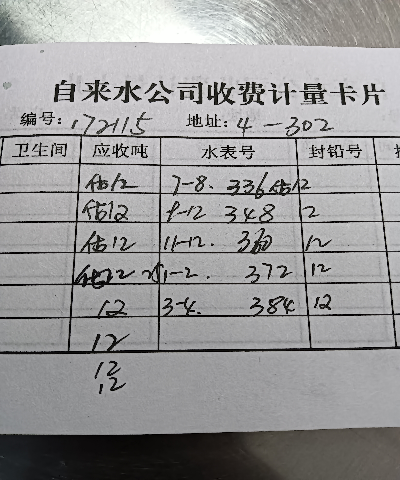 自来水公司收费计量卡片
编号: 172115 地址: 4-302
卫生间 应收吨 水表号 封铅号
估12 7-8. 336 估12
估12 9-12 348 2
估12 11-12. 360 12
估12 1-2. 372 12
12 3-4. 384 12
12
12
12